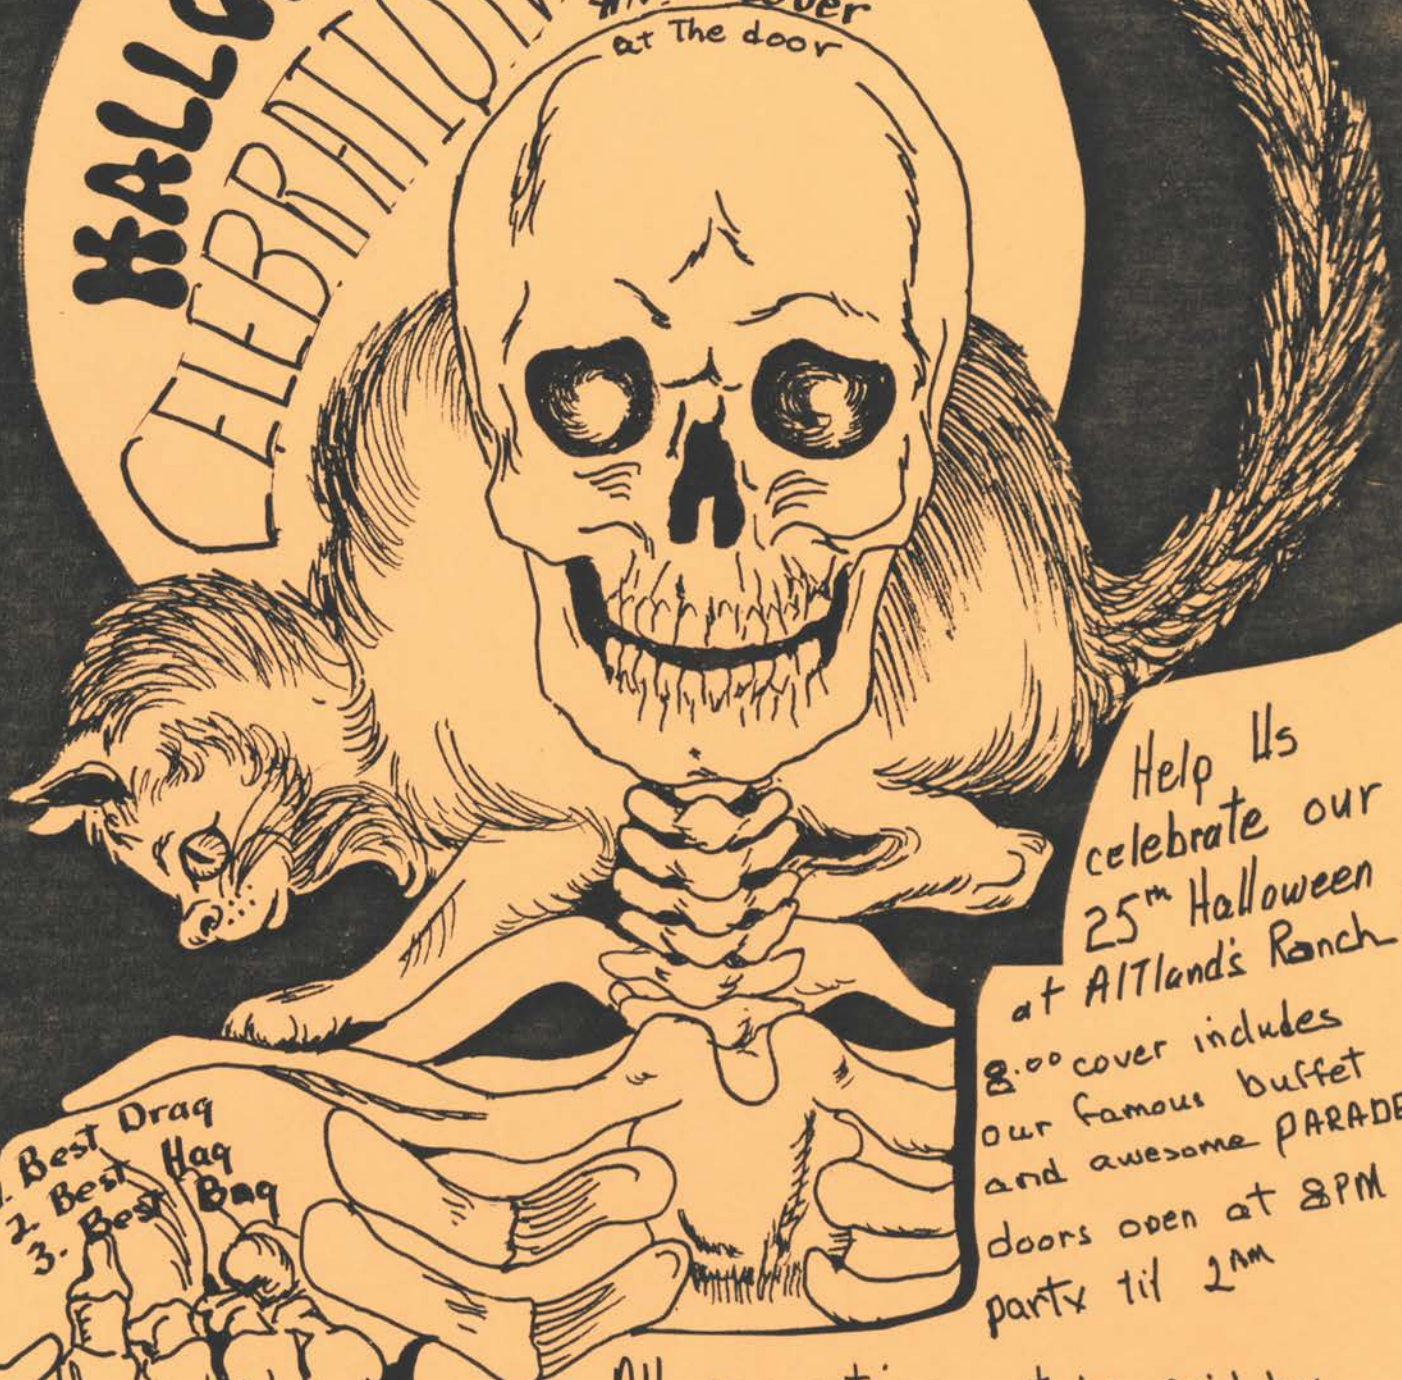 HALLO
CELEBRATION
cover
at The door
Help Us
celebrate our
25th Halloween
at AlTland's Ranch
8.00 cover includes
our famous buffet
and awesome PARADE
doors open at 8PM
party til 2AM
1. Best Drag
2. Best Hag
3. Best Bag
All